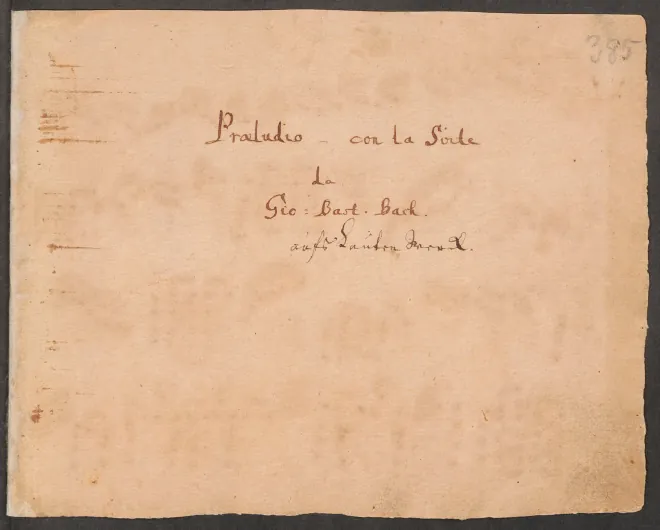 385
Præludio – con la Süite
da
Gio: Bast. Bach.
aufs Lauten Werck.